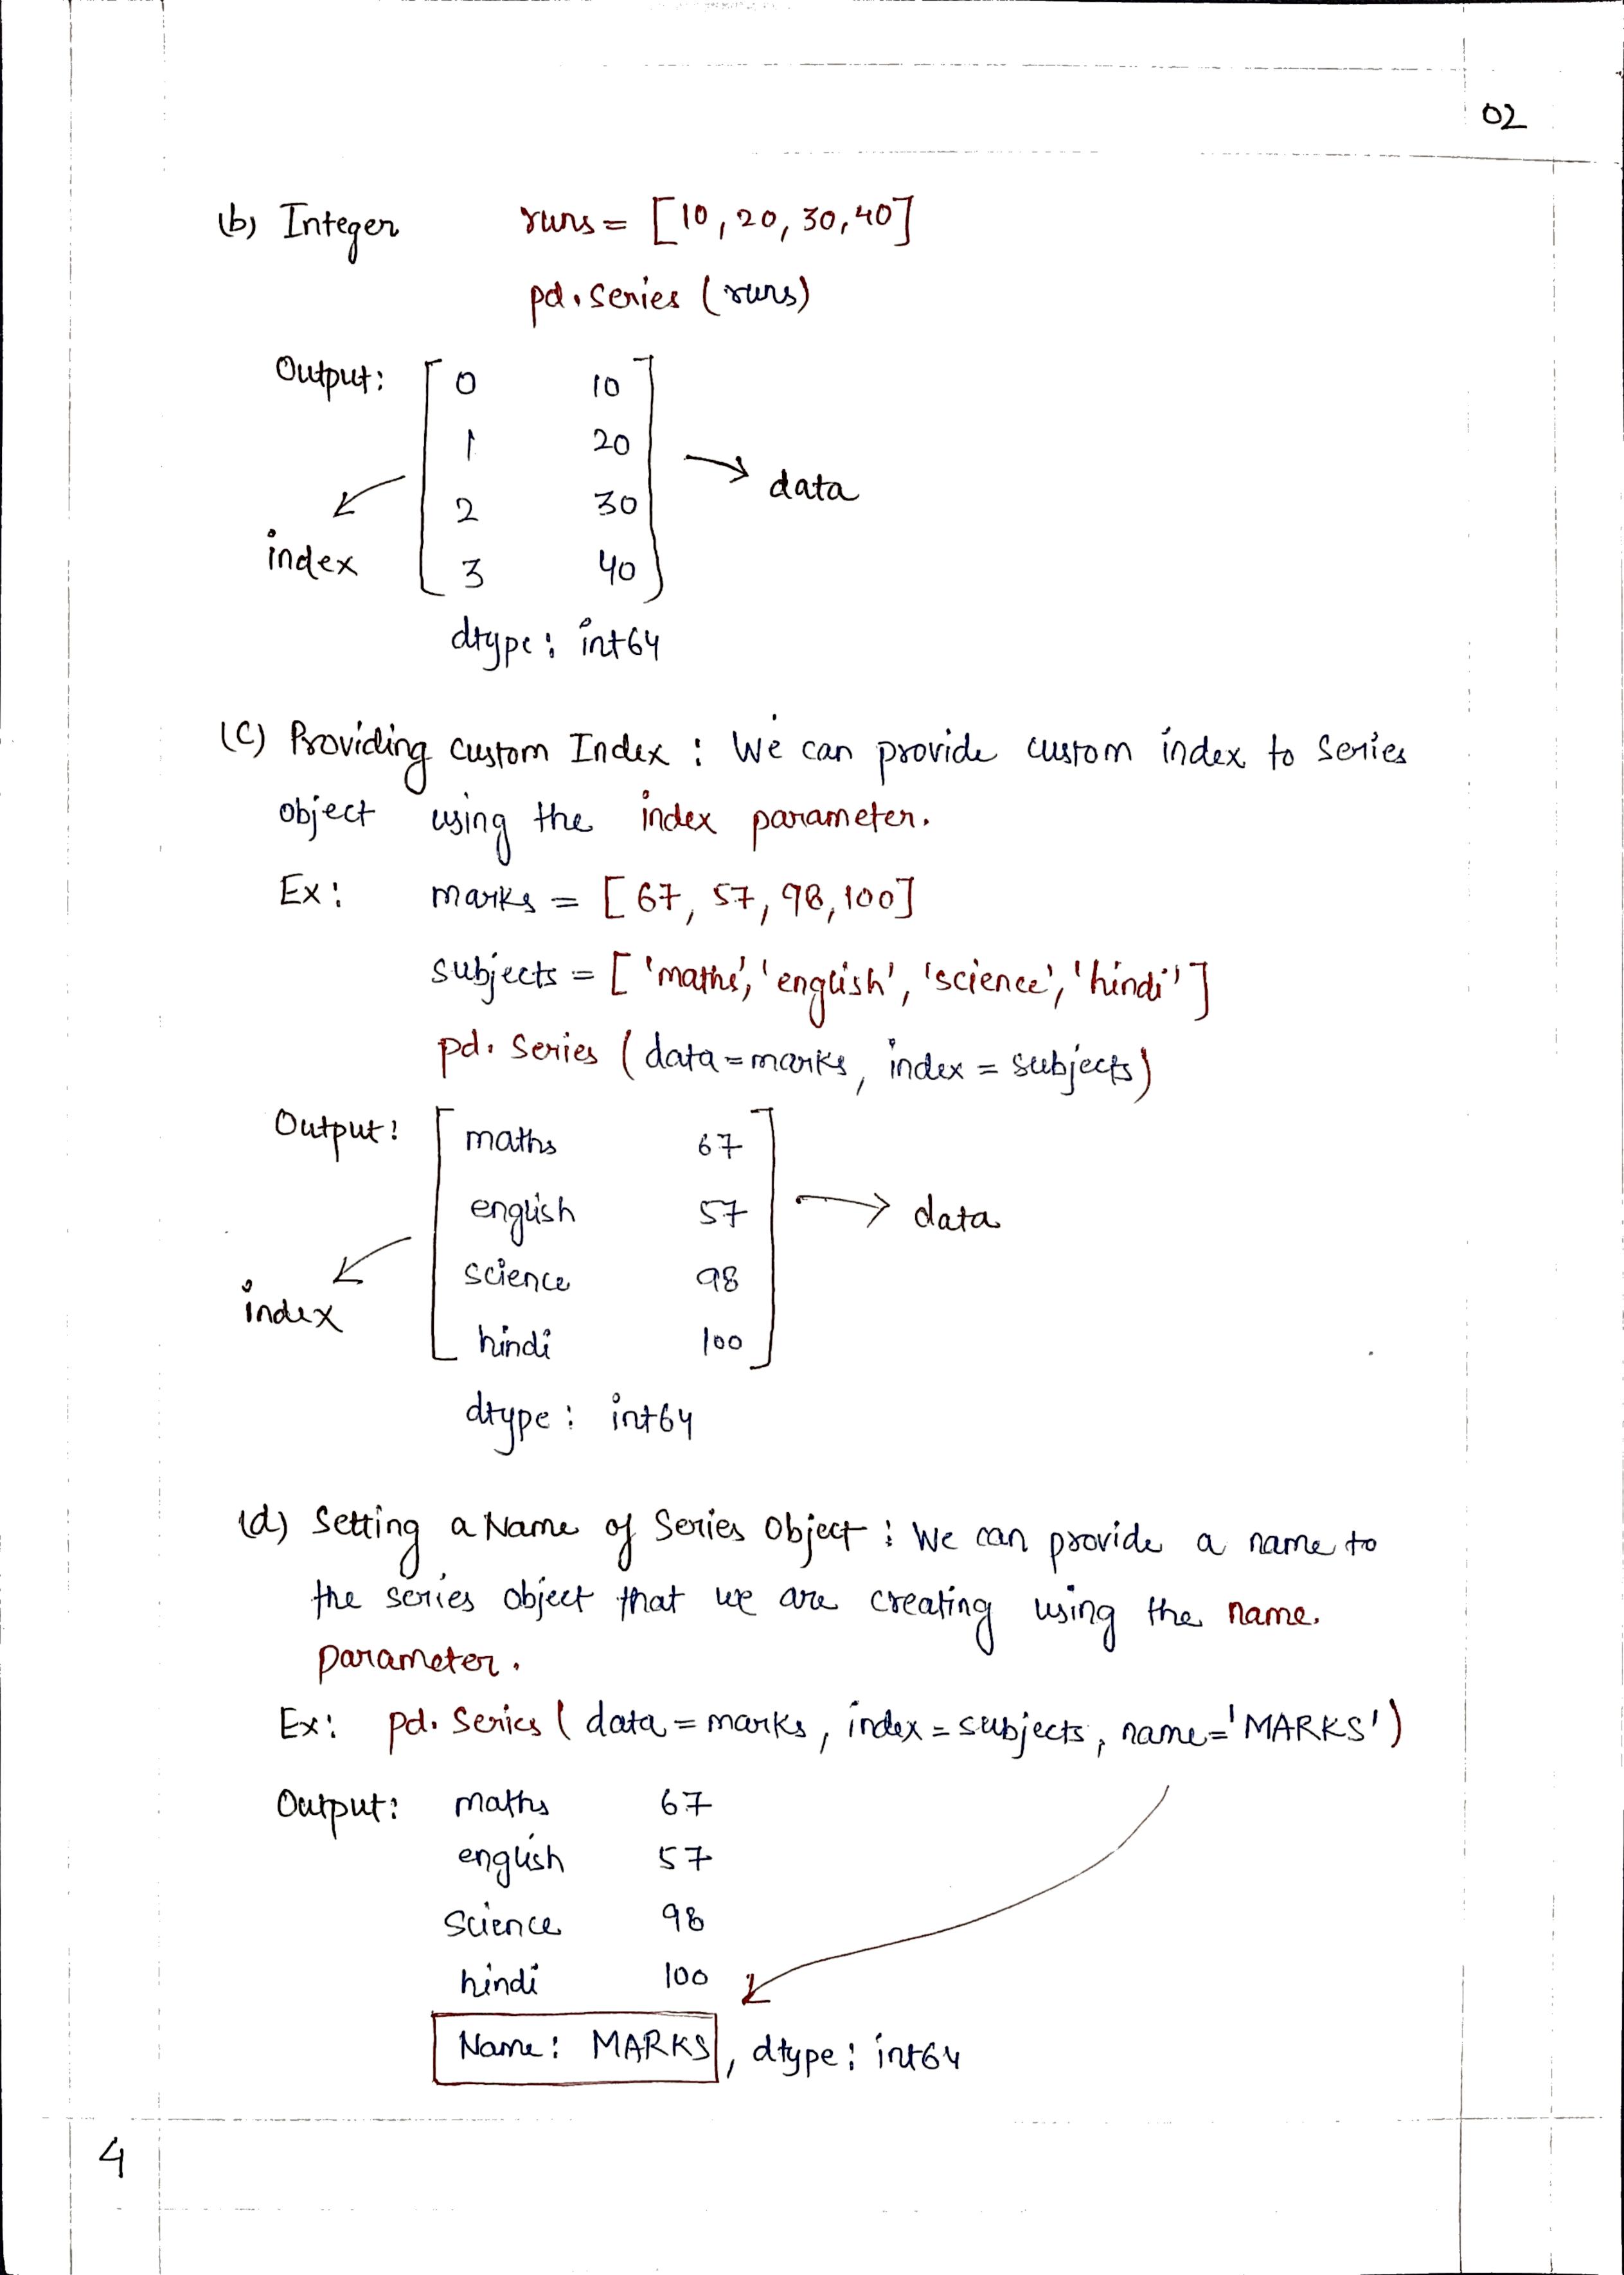 02
(b) Integer runs = [10, 20, 30, 40]
pd. series (runs)
Output: 0 10
1 20
data
2 30
index
3 40
dtype: int64
(C) Providing custom Index : We can provide custom index to Series
object using the index parameter.
Ex: marks = [67, 57, 98, 100]
subjects = ['maths', 'english', 'science', 'hindi']
pd. Series (data = marks, index = subjects)
Output: maths 67
english 57
data
science 98
index
hindi 100
dtype : int64
(d) Setting a Name of Series Object : We can provide a name to
the series object that we are creating using the name.
parameter.
Ex: pd. Series ( data = marks, index = subjects, name='MARKS')
Output: maths 67
english 57
Science 98
hindi 100
Name: MARKS, dtype: int64
4